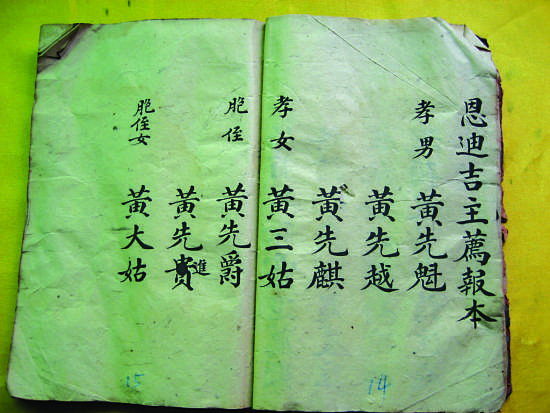 恩迪吉主薦報本
孝男 黃先魁
黃先越
黃先麒
孝女 黃三姑
胞侄 黃先爵
黃先貴進
胞侄女 黃大姑
14
15